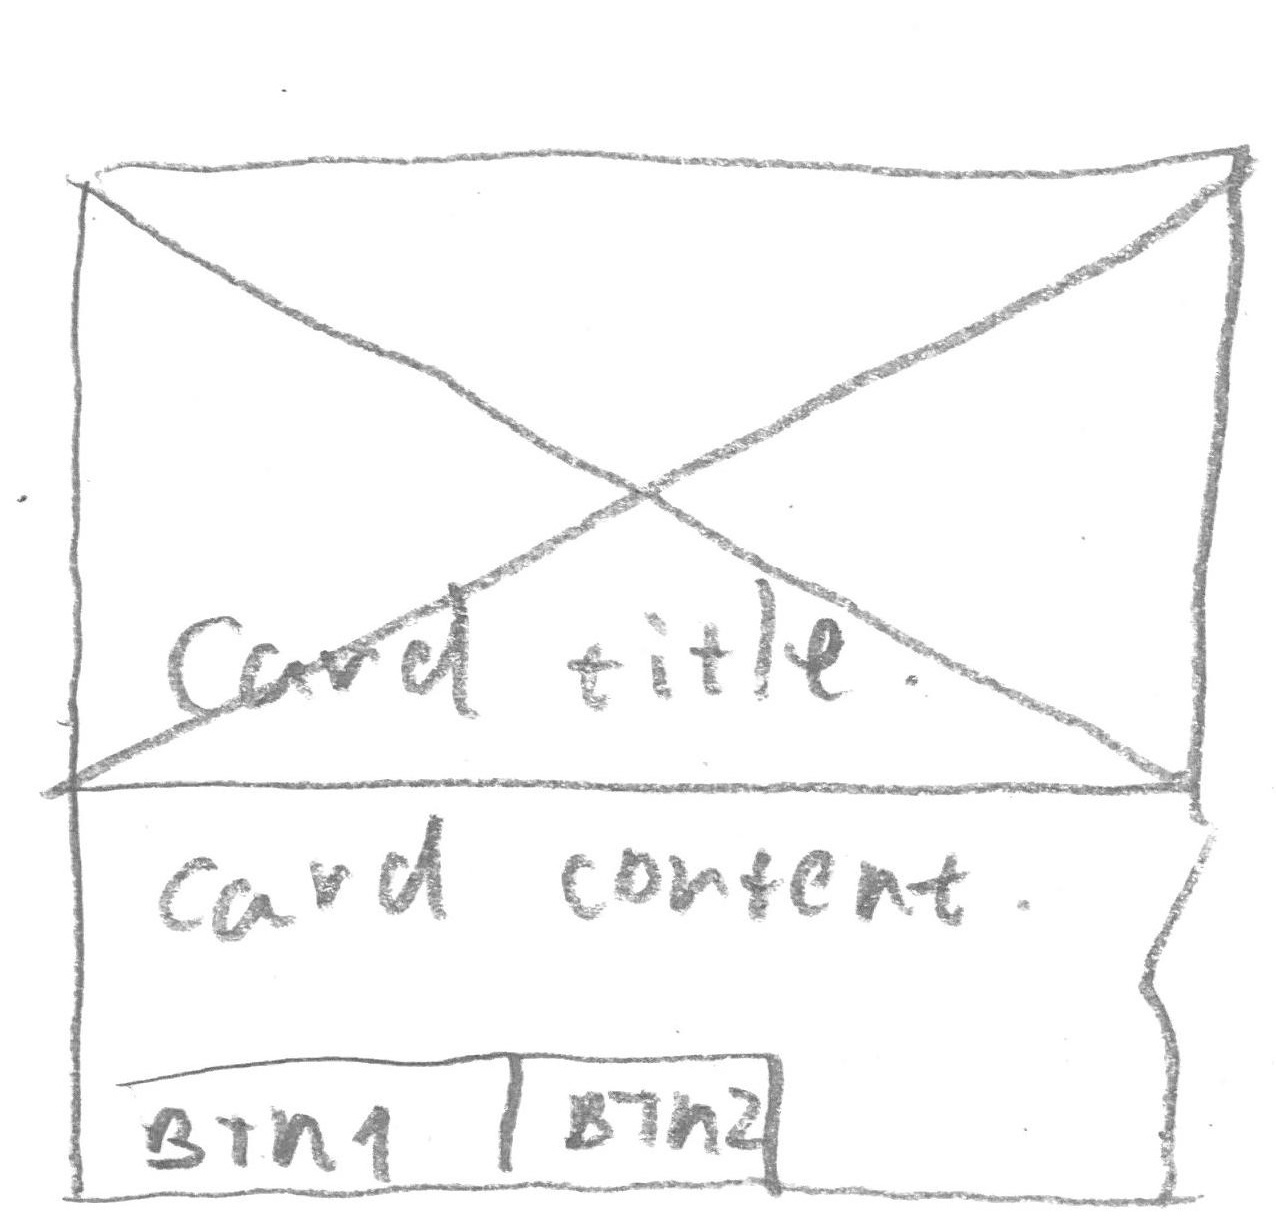 Card title.
card content.
BTn1 BTn2